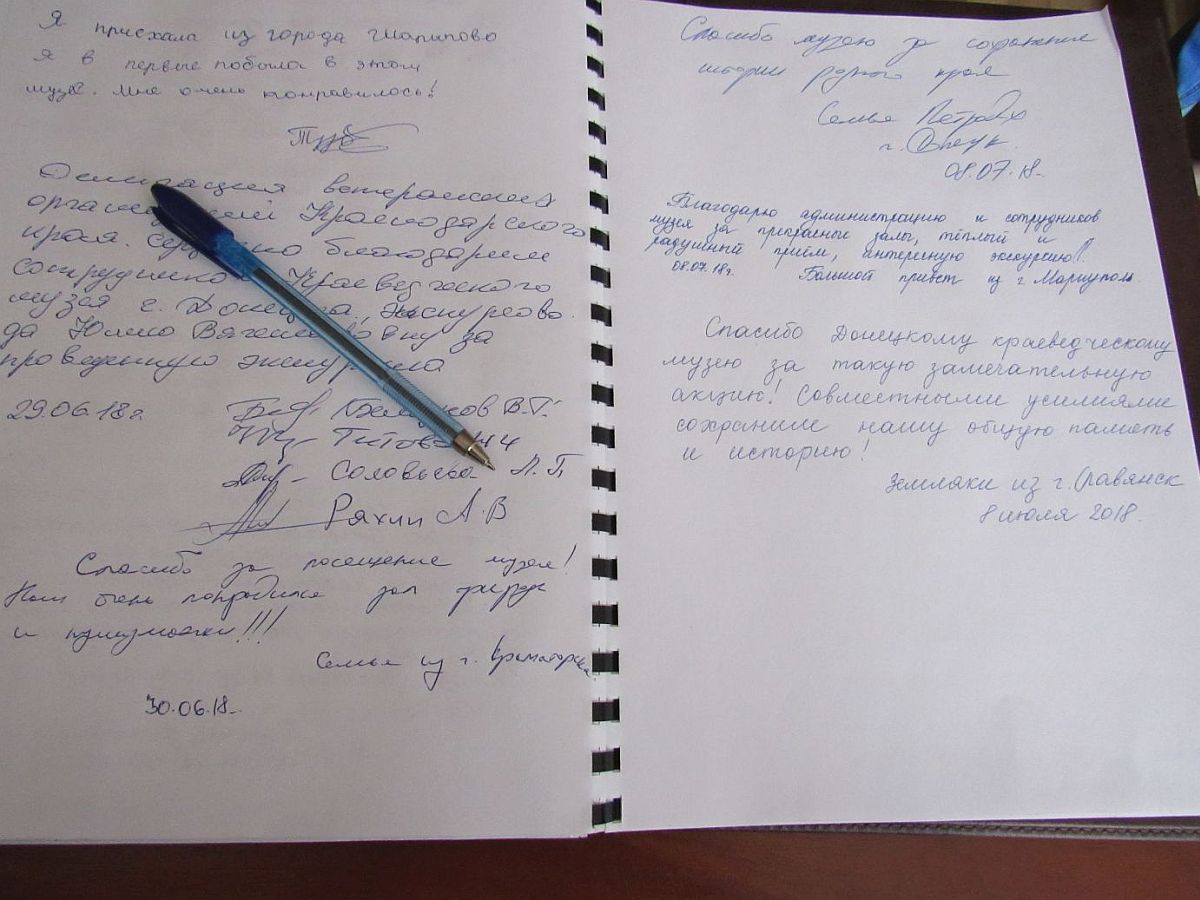 Я приехала из города Шарыпово
Я в первые побыла в этом
музее. Мне очень понравилось!
Делегация ветеранских
Краснодарского
края. благодарим
Краеведческого
музея г. Донецка, экскурсово-
да Юлию за
проведенную экскурсию
29.06.18г.
В.Г.
Титова
Соловьева Л.П
Ряхин А.В
Спасибо за посещение музея!
Нам очень понравился зал
и нумизматики!!!
Семья из г. Краматорска
30.06.18.
Спасибо музею за сохранение
истории родного края
Семья
г.
08.07.18.
Благодарю администрацию и сотрудников
музея за прекрасные залы, тёплый и
радушный приём, интересную экскурсию!!
08.07.18г. Большой привет из г Мариуполь.
Спасибо Донецкому краеведческому
музею за такую замечательную
акцию! Совместными усилиями
сохраним нашу общую память
и историю!
Земляки из г. Славянск
8 июля 2018.